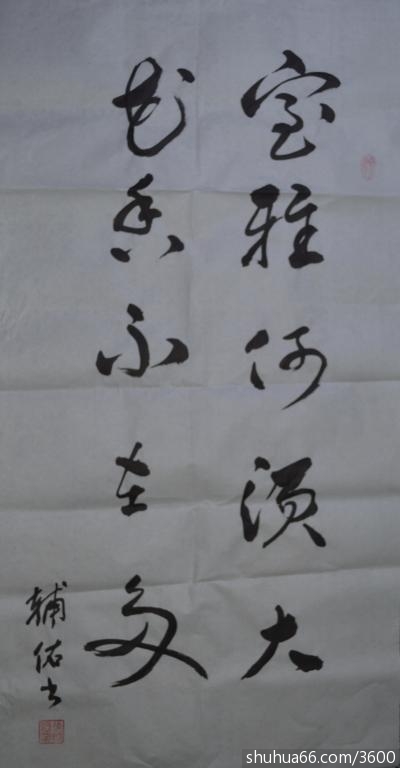 室雅何须大
花香不在多
辅佑书
shuhua66.com/3600